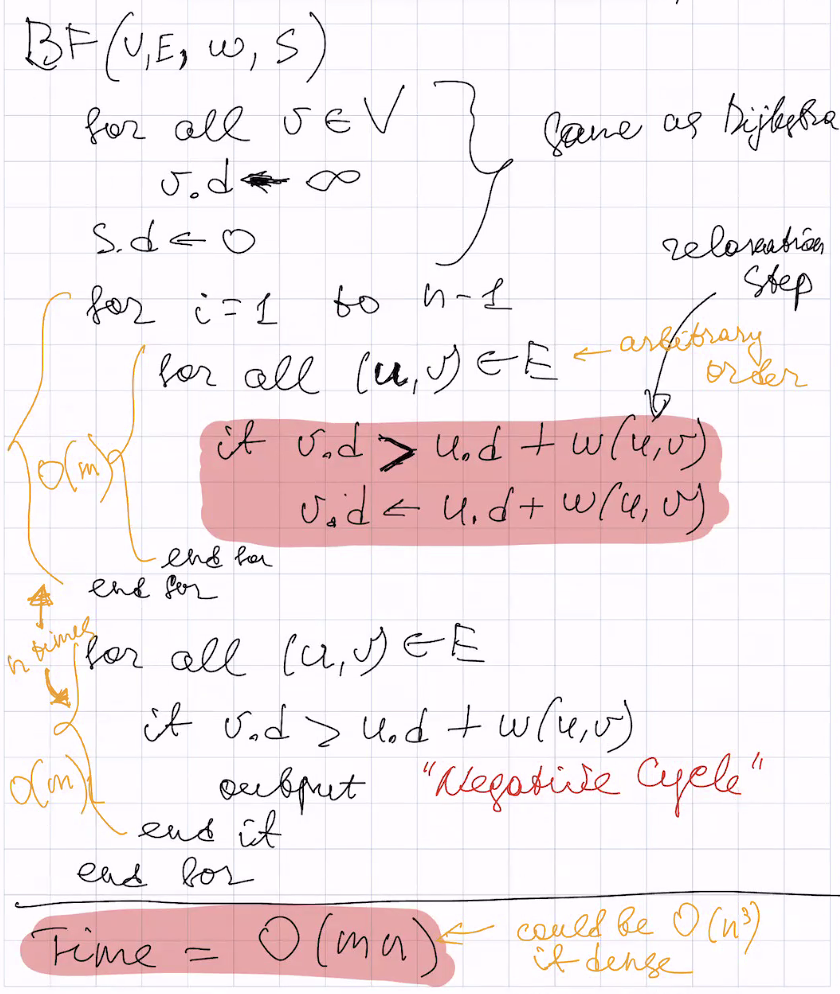 BF(V,E, w, S)
for all v ∈ V
v.d ← ∞
S.d ← 0
same as Dijkstra
relaxation
step
for i=1 to n-1
for all (u,v) ∈ E
← arbitrary
order
if v.d > u.d + w(u,v)
v.d ← u.d + w(u,v)
O(m)
end for
end for
n times
for all (u,v) ∈ E
if v.d > u.d + w(u,v)
output "Negative Cycle"
O(m)
end if
end for
Time = O(mn)
← could be O(n³)
if dense